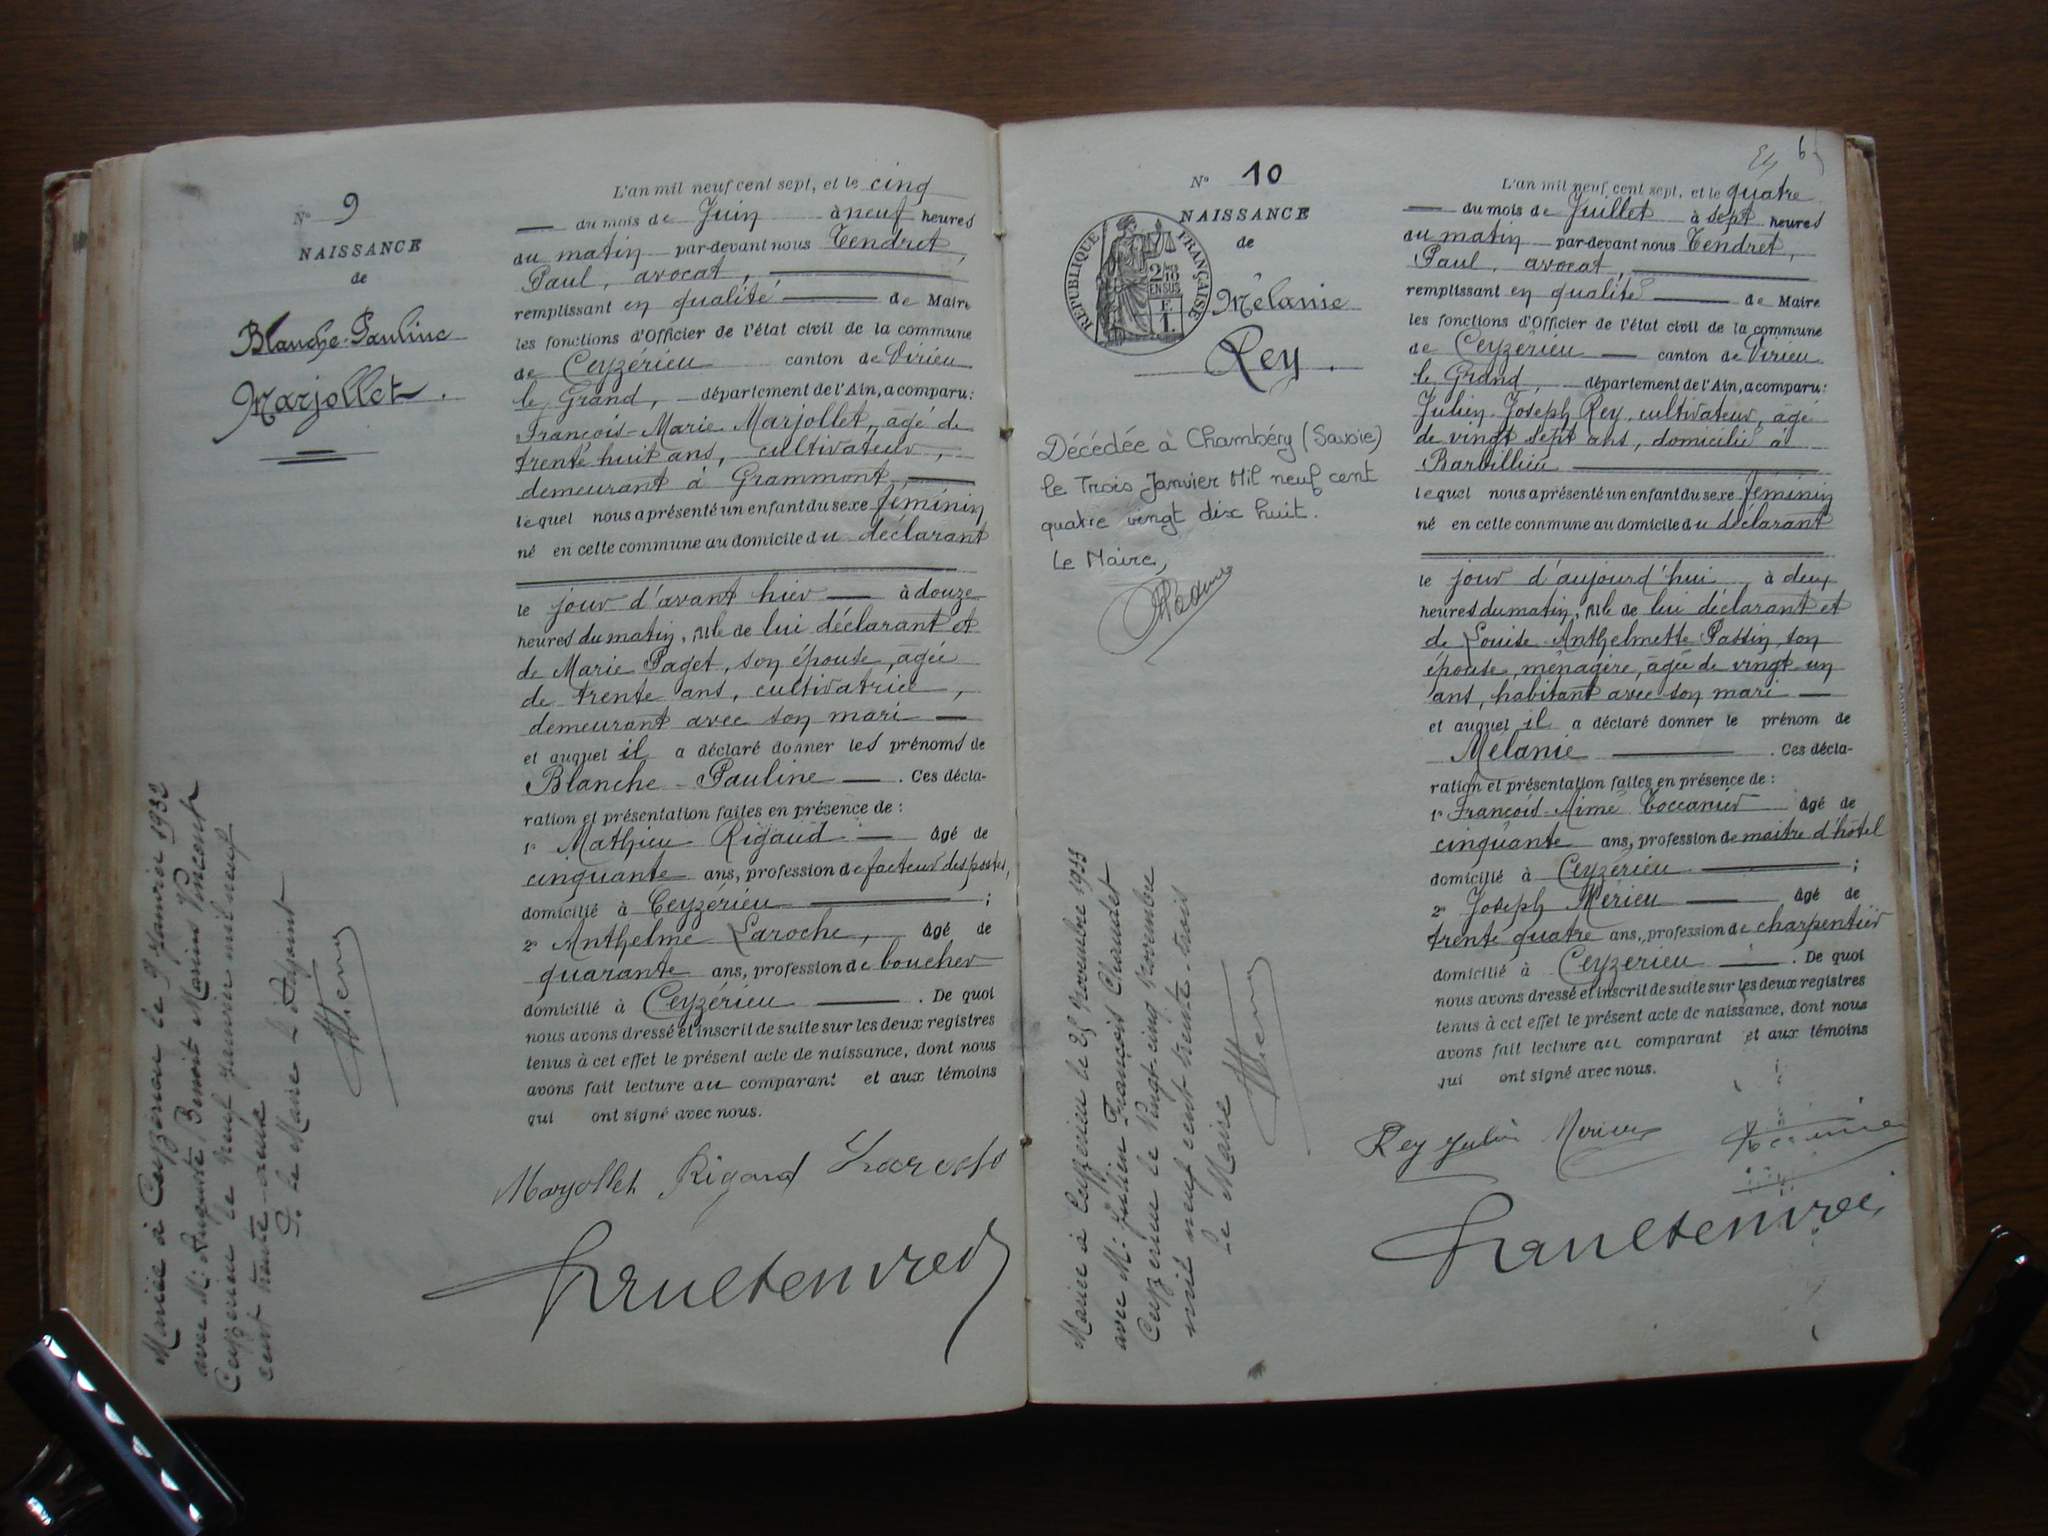 N° 9
NAISSANCE
de
Blanche-Pauline
Marjollet.
L'an mil neuf cent sept, et le cinq
du mois de Juin à neuf heures
du matin par-devant nous Tendret,
Paul, avocat,
remplissant en qualité de Maire
les fonctions d'Officier de l'état civil de la commune
de Ceyzérieu canton de Virieu
le Grand, département de l'Ain, a comparu:
François-Marie Marjollet, âgé de
trente huit ans, cultivateur,
demeurant à Grammont,
lequel nous a présenté un enfant du sexe féminin
né en cette commune au domicile du déclarant
le jour d'avant hier à douze
heures du matin, fille de lui déclarant et
de Marie Paget, son épouse, âgée
de trente ans, cultivatrice,
demeurant avec son mari
et auquel il a déclaré donner les prénoms de
Blanche-Pauline. Ces décla-
ration et présentation faites en présence de:
1° Mathieu Rigaud âgé de
cinquante ans, profession de facteur des postes,
domicilié à Ceyzérieu;
2° Anthelme Laroche, âgé de
quarante ans, profession de boucher
domicilié à Ceyzérieu. De quoi
nous avons dressé et inscrit de suite sur les deux registres
tenus à cet effet le présent acte de naissance, dont nous
avons fait lecture au comparant et aux témoins
qui ont signé avec nous.
Marjollet Rigaud Laroche
Mariée à Ceyzérieu le 9 Janvier 1932
avec Mr Auguste Benoit Marin Vincent
Ceyzérieu le neuf Janvier mil neuf
cent trente-deux
P. le Maire l'Adjoint
N° 10
NAISSANCE
de
Mélanie
Rey.
RÉPUBLIQUE FRANÇAISE
2/10
EN SUS
Décédée à Chambéry (Savoie)
le Trois Janvier Mil neuf cent
quatre vingt dix huit.
Le Maire,
Mariée à Ceyzérieu le 25 Novembre 1933
avec Mr Julien François Chaudet
Ceyzérieu le Vingt-cinq Novembre
mil neuf cent trente-trois
Le Maire
6
L'an mil neuf cent sept, et le quatre
du mois de Juillet à sept heures
du matin par-devant nous Tendret,
Paul, avocat,
remplissant en qualité de Maire
les fonctions d'Officier de l'état civil de la commune
de Ceyzérieu canton de Virieu
le Grand, département de l'Ain, a comparu:
Julien-Joseph Rey, cultivateur, âgé
de vingt sept ans, domicilié à
Barbillieu
lequel nous a présenté un enfant du sexe féminin
né en cette commune au domicile du déclarant
le jour d'aujourd'hui à deux
heures du matin, fille de lui déclarant et
de Louise-Anthelmette Passin, son
épouse, ménagère, âgée de vingt un
ans, habitant avec son mari
et auquel il a déclaré donner le prénom de
Mélanie. Ces décla-
ration et présentation faites en présence de:
1° François-Aimé Toccanier âgé de
cinquante ans, profession de maître d'hôtel
domicilié à Ceyzérieu;
2° Joseph Mérieu âgé de
trente quatre ans, profession de charpentier
domicilié à Ceyzérieu. De quoi
nous avons dressé et inscrit de suite sur les deux registres
tenus à cet effet le présent acte de naissance, dont nous
avons fait lecture au comparant et aux témoins
qui ont signé avec nous.
Rey Julien Mérieu